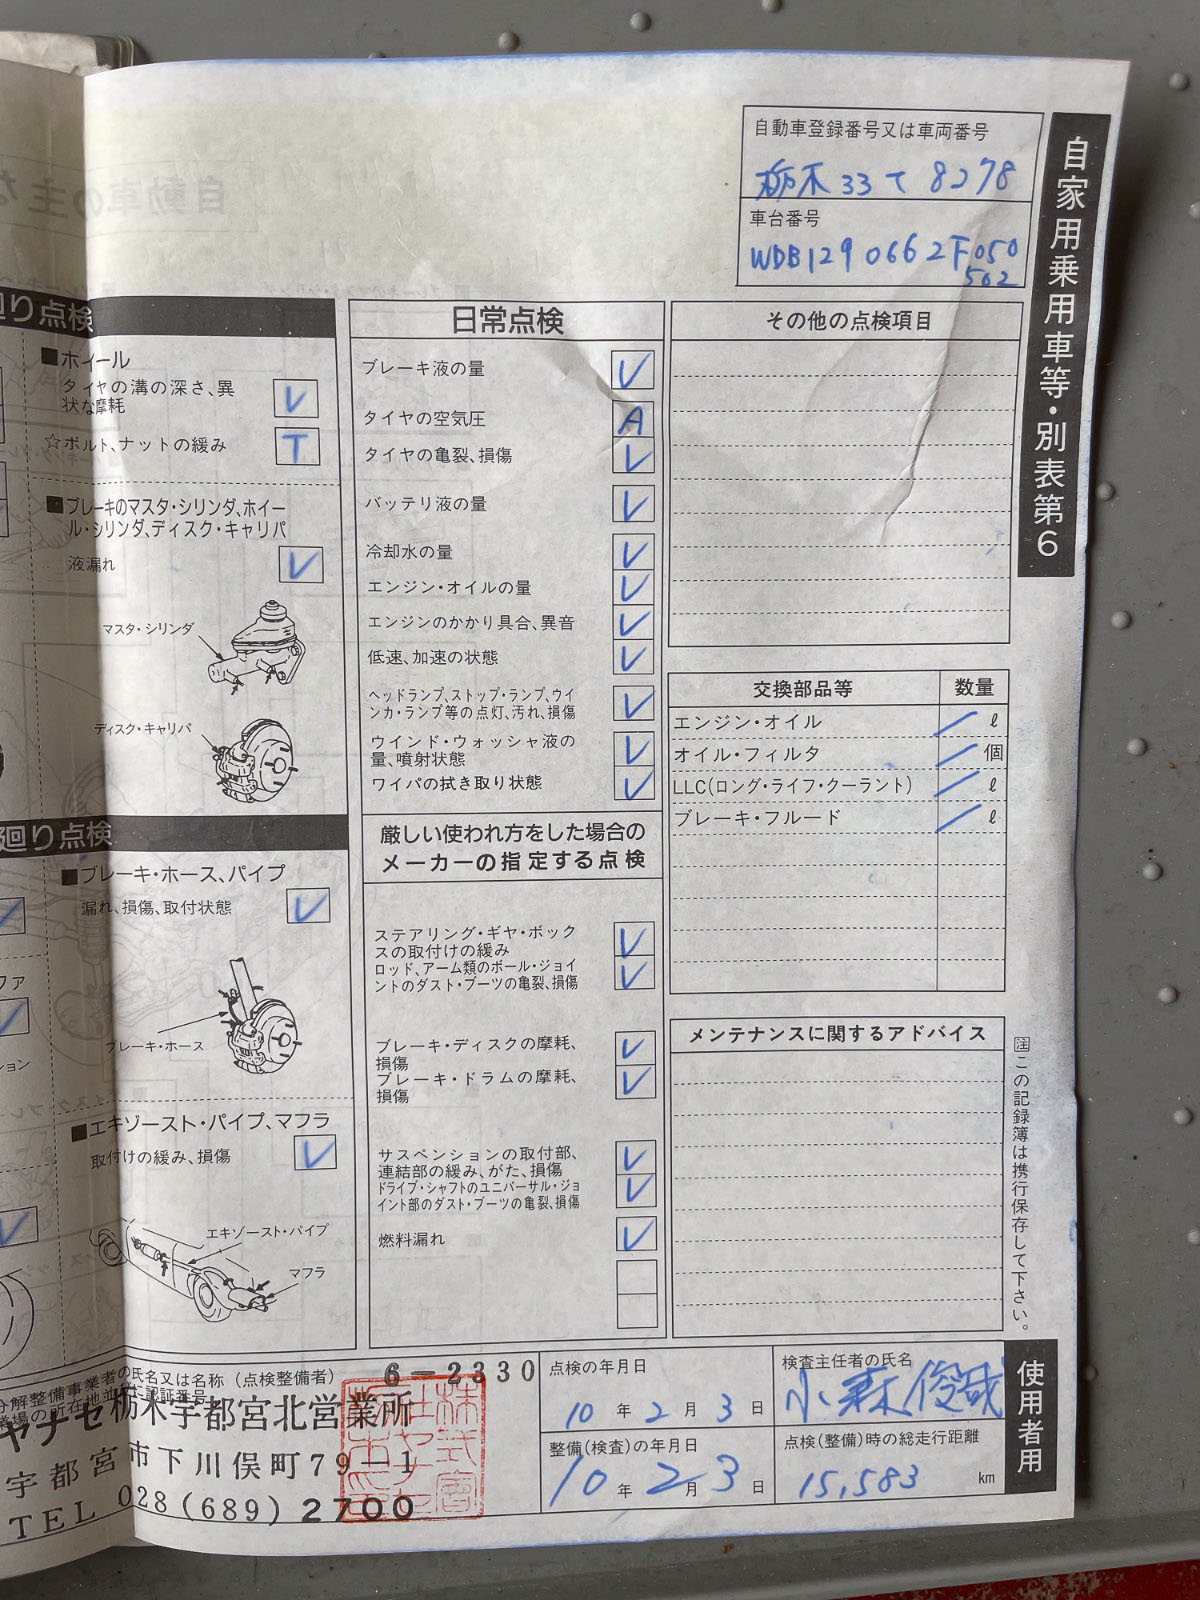 自動車登録番号又は車両番号
栃木 33 て 8278
車台番号
WDB1290662F050
502
自家用乗用車等・別表第6
廻り点検
■ホイール
タイヤの溝の深さ、異
状な摩耗
レ
☆ボルト、ナットの緩み
T
■ブレーキのマスタ・シリンダ、ホイー
ル・シリンダ、ディスク・キャリパ
液漏れ
レ
マスタ・シリンダ
ディスク・キャリパ
廻り点検
■ブレーキ・ホース、パイプ
漏れ、損傷、取付状態
レ
ブレーキ・ホース
■エキゾースト・パイプ、マフラ
取付けの緩み、損傷
レ
エキゾースト・パイプ
マフラ
日常点検
ブレーキ液の量
レ
タイヤの空気圧
A
タイヤの亀裂、損傷
レ
バッテリ液の量
レ
冷却水の量
レ
エンジン・オイルの量
レ
エンジンのかかり具合、異音
レ
低速、加速の状態
レ
ヘッドランプ、ストップ・ランプ、ウイ
ンカ・ランプ等の点灯、汚れ、損傷
レ
ウインド・ウォッシャ液の
量、噴射状態
レ
ワイパの拭き取り状態
レ
厳しい使われ方をした場合の
メーカーの指定する点検
ステアリング・ギヤ・ボック
スの取付けの緩み
レ
ロッド、アーム類のボール・ジョイ
ントのダスト・ブーツの亀裂、損傷
レ
ブレーキ・ディスクの摩耗、
損傷
レ
ブレーキ・ドラムの摩耗、
損傷
レ
サスペンションの取付部、
連結部の緩み、がた、損傷
レ
ドライブ・シャフトのユニバーサル・ジョ
イント部のダスト・ブーツの亀裂、損傷
レ
燃料漏れ
レ
その他の点検項目
交換部品等 数量
エンジン・オイル ℓ
オイル・フィルタ 個
LLC(ロング・ライフ・クーラント) ℓ
ブレーキ・フルード ℓ
メンテナンスに関するアドバイス
注この記録簿は携行保存して下さい。
分解整備事業者の氏名又は名称 (点検整備者)
6-2330
ヤナセ栃木宇都宮北営業所
宇都宮市下川俣町79-1
TEL 028(689)2700
点検の年月日
10 年 2 月 3 日
整備(検査)の年月日
10 年 2 月 3 日
検査主任者の氏名
小森俊哉
点検(整備)時の総走行距離
15,583 km
使用者用